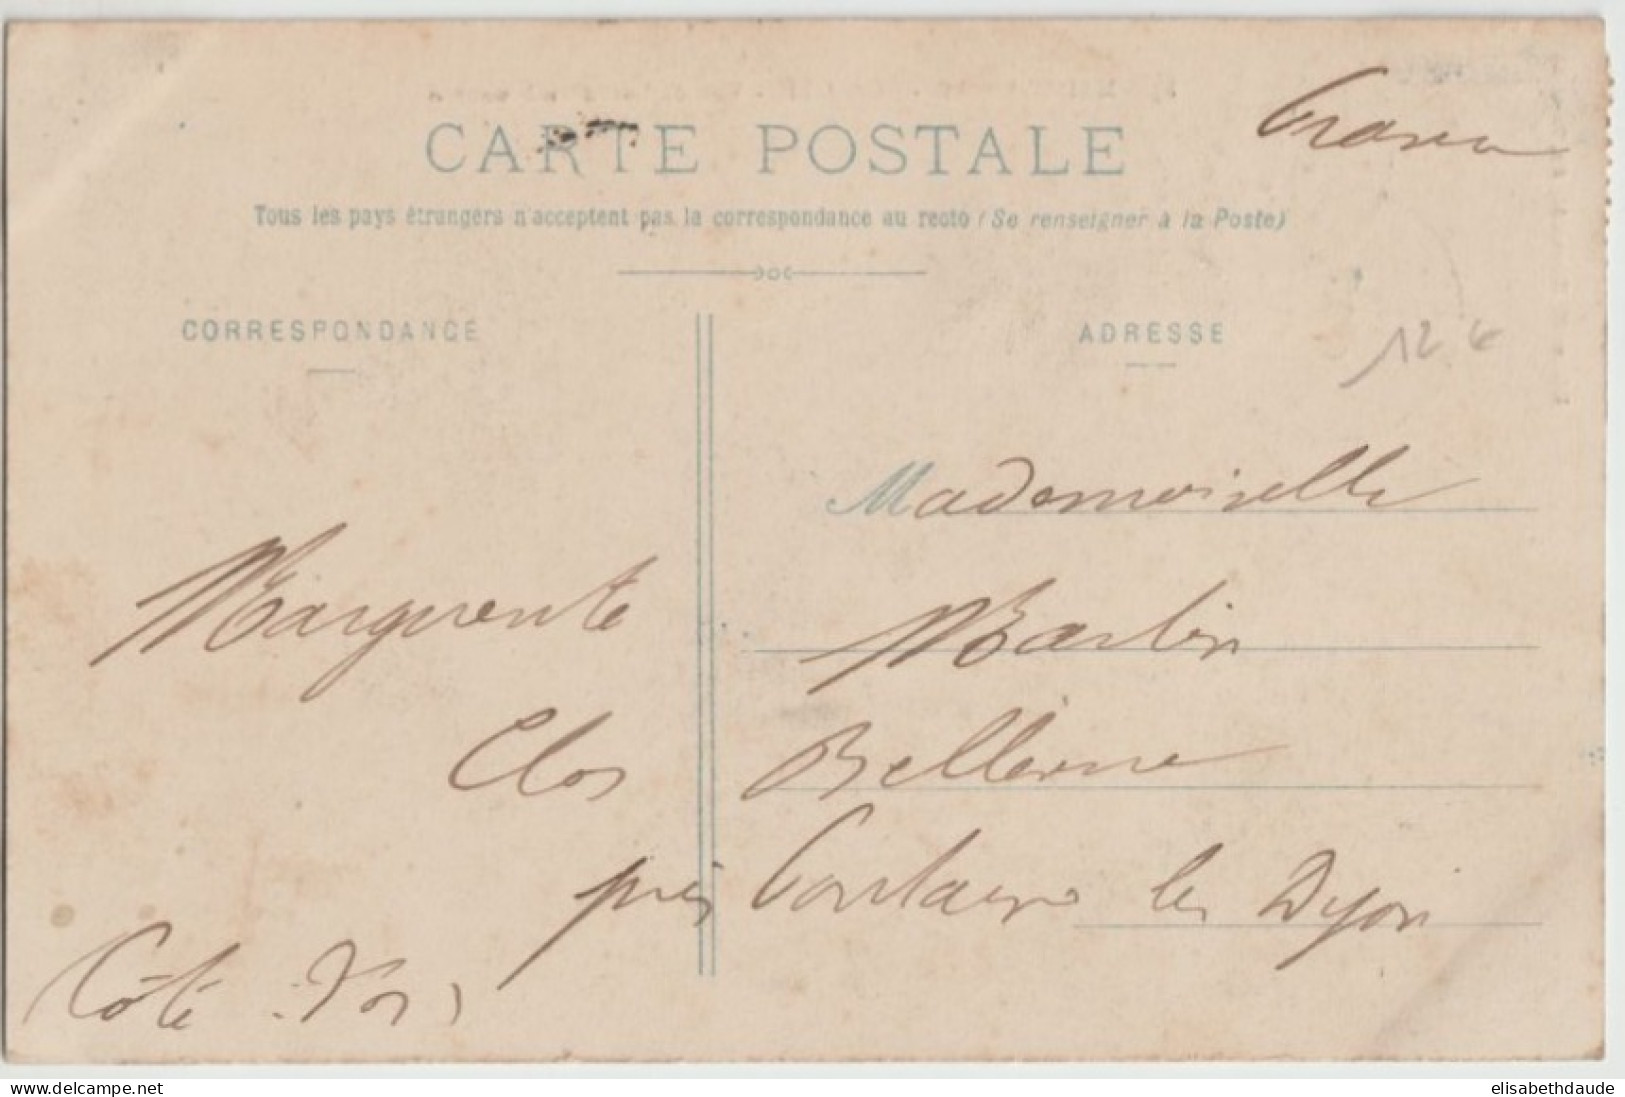 CARTE POSTALE
Tous les pays étrangers n'acceptent pas la correspondance au recto (Se renseigner à la Poste)
CORRESPONDANCE
ADRESSE
12 €
Mademoiselle
Marguerite Martin
Clos Bellevue
près Fontaine les Dijon
Côte d'Or
www.delcampe.net
elisabethdaude